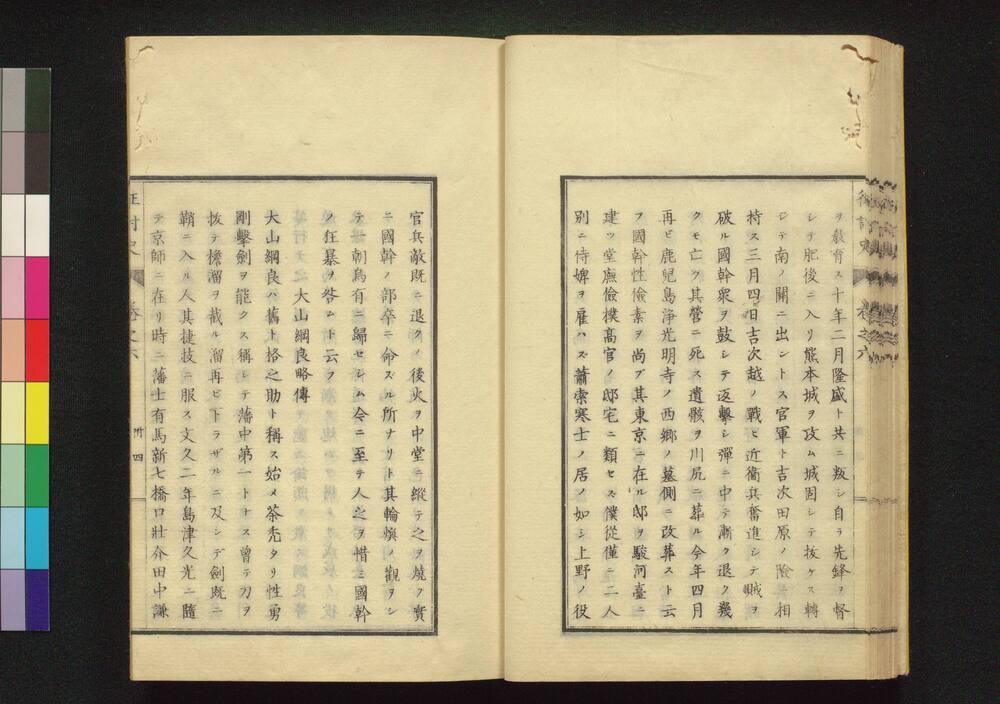 ヲ敎育ス十年二月隆盛ト共ニ叛シ自ラ先鋒ヲ督
シテ肥後ニ入リ熊本城ヲ攻ム城固シテ拔ケス轉
シテ南ノ關ニ出ントス官軍ト吉次田原ノ險ニ相
持ス三月四日吉次越ノ戰ヒ近衞兵奮進シテ賊ヲ
破ル國幹衆ヲ鼓シテ返擊シ彈ニ中テ漸ク退ク幾
クモ亡ク其營ニ死ス遺骸ヲ川尻ニ葬ル今年四月
再ビ鹿兒島淨光明寺ノ西鄕ノ墓側ニ改葬スト云
フ國幹性儉素ヲ尚ブ其東京ニ在ル邸ヲ駿河臺ニ
建ツ堂廡儉樸高官ノ邸宅ニ類セス僕從僅ニ二人
別ニ侍婢ヲ雇ハズ蕭索寒士ノ居ノ如シ上野ノ役
官兵敵既ニ退クノ後火ヲ中堂ニ縱テ之ヲ燒ク實
ニ國幹ノ部卒ニ命ズル所ナリト其輪煥ノ觀ヲシ
テ一朝烏有ニ歸セシム今ニ至テ人之ヲ惜ミ國幹
ノ狂暴ヲ咎ムト云フ
大山綱良略傳
大山綱良ハ舊ト格之助ト稱ス始メ茶禿タリ性勇
剛擊劍ヲ能クス稱シテ藩中第一トトス曾テ刀ヲ
拔テ檐溜ヲ截ル溜再ビ下ラザルニ及シデ劍既ニ
鞘ニ入ル人其捷技ニ服ス文久二年島津久光ニ隨
テ京師ニ在リ時ニ藩士有馬新七橋口壯介田中謙
征討史 卷之六 卅四